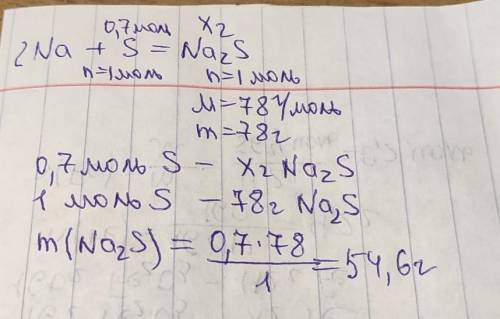 0,7 моль х г
2Na + S = Na₂S
n=1моль n=1моль
M=78г/моль
m=78г
0,7 моль S – х г Na₂S
1 моль S – 78г Na₂S
m(Na₂S) = 0,7·78 / 1 = 54,6г